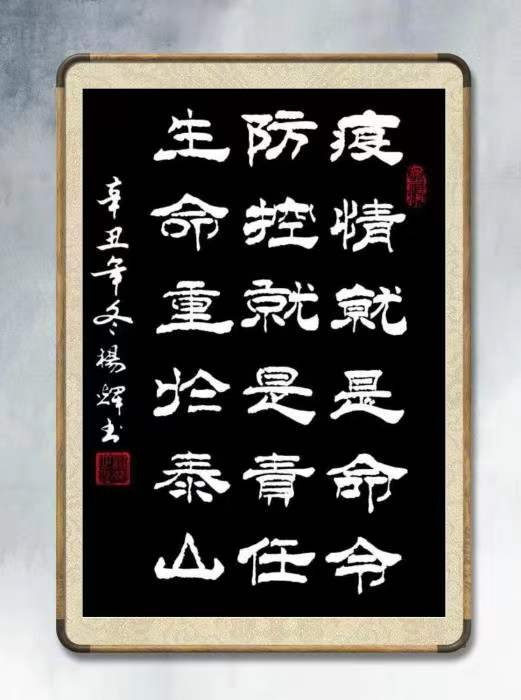 疫情就是命令
防控就是責任
生命重於泰山
辛丑年冬楊輝书